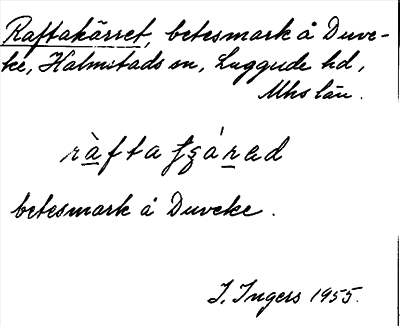 Raftakärret, betesmark å Duve-
ke, Halmstads sn, Luggude hd,
Mhs län.
ràfta
betesmark å Duveke.
I. Ingers 1955.